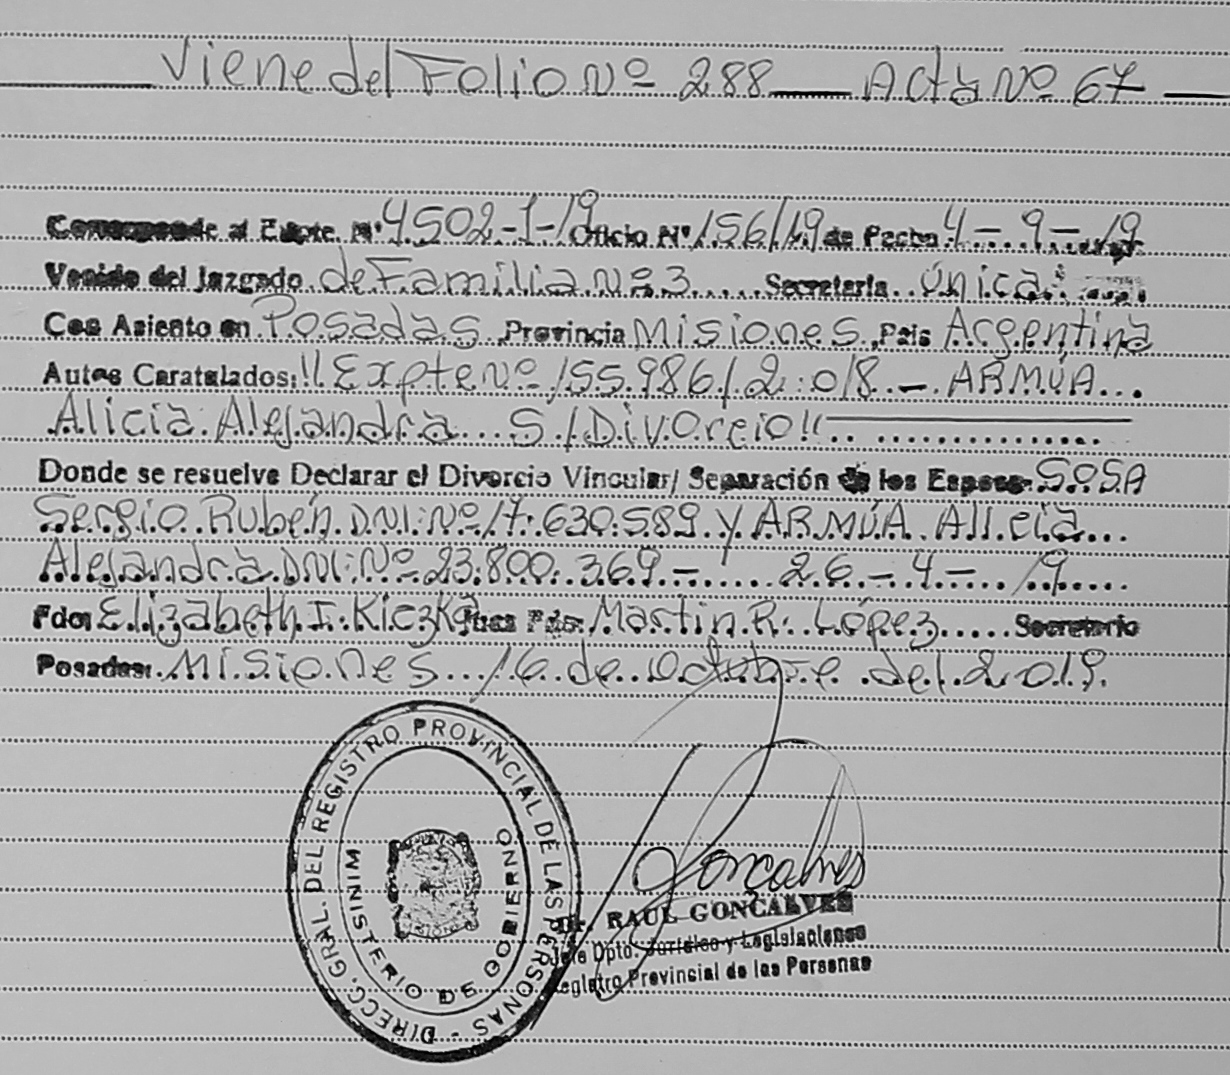 Viene del Folio Nº 288 — Acta Nº 67 —
Corresponde al Expte. Nº 4502-1-19 Oficio Nº 156/19 de Fecha 4-9-19
Venido del Juzgado de Familia Nº 3 Secretaria Única
Con Asiento en Posadas Provincia Misiones País Argentina
Autos Caratulados: "Expte Nº 155.986/2018 - ARMÚA
Alicia Alejandra S/Divorcio"
Donde se resuelve Declarar el Divorcio Vincular/ Separación de los Esposos SOSA
Sergio Rubén DNI: Nº 17.630.589 y ARMÚA Alicia
Alejandra DNI: Nº 23.800.369 - 26-4-19
Fdo: Elizabeth I. Kiczka Juez Fdo: Martin R. López Secretario
Posadas: Misiones 16 de Octubre del 2019.
DIRECC. GRAL. DEL REGISTRO PROVINCIAL DE LAS PERSONAS -
MINISTERIO DE GOBIERNO
Goncalves
Dr. RAUL GONCALVES
Jefe Dpto. Jurídico y Legislaciones
Registro Provincial de las Personas